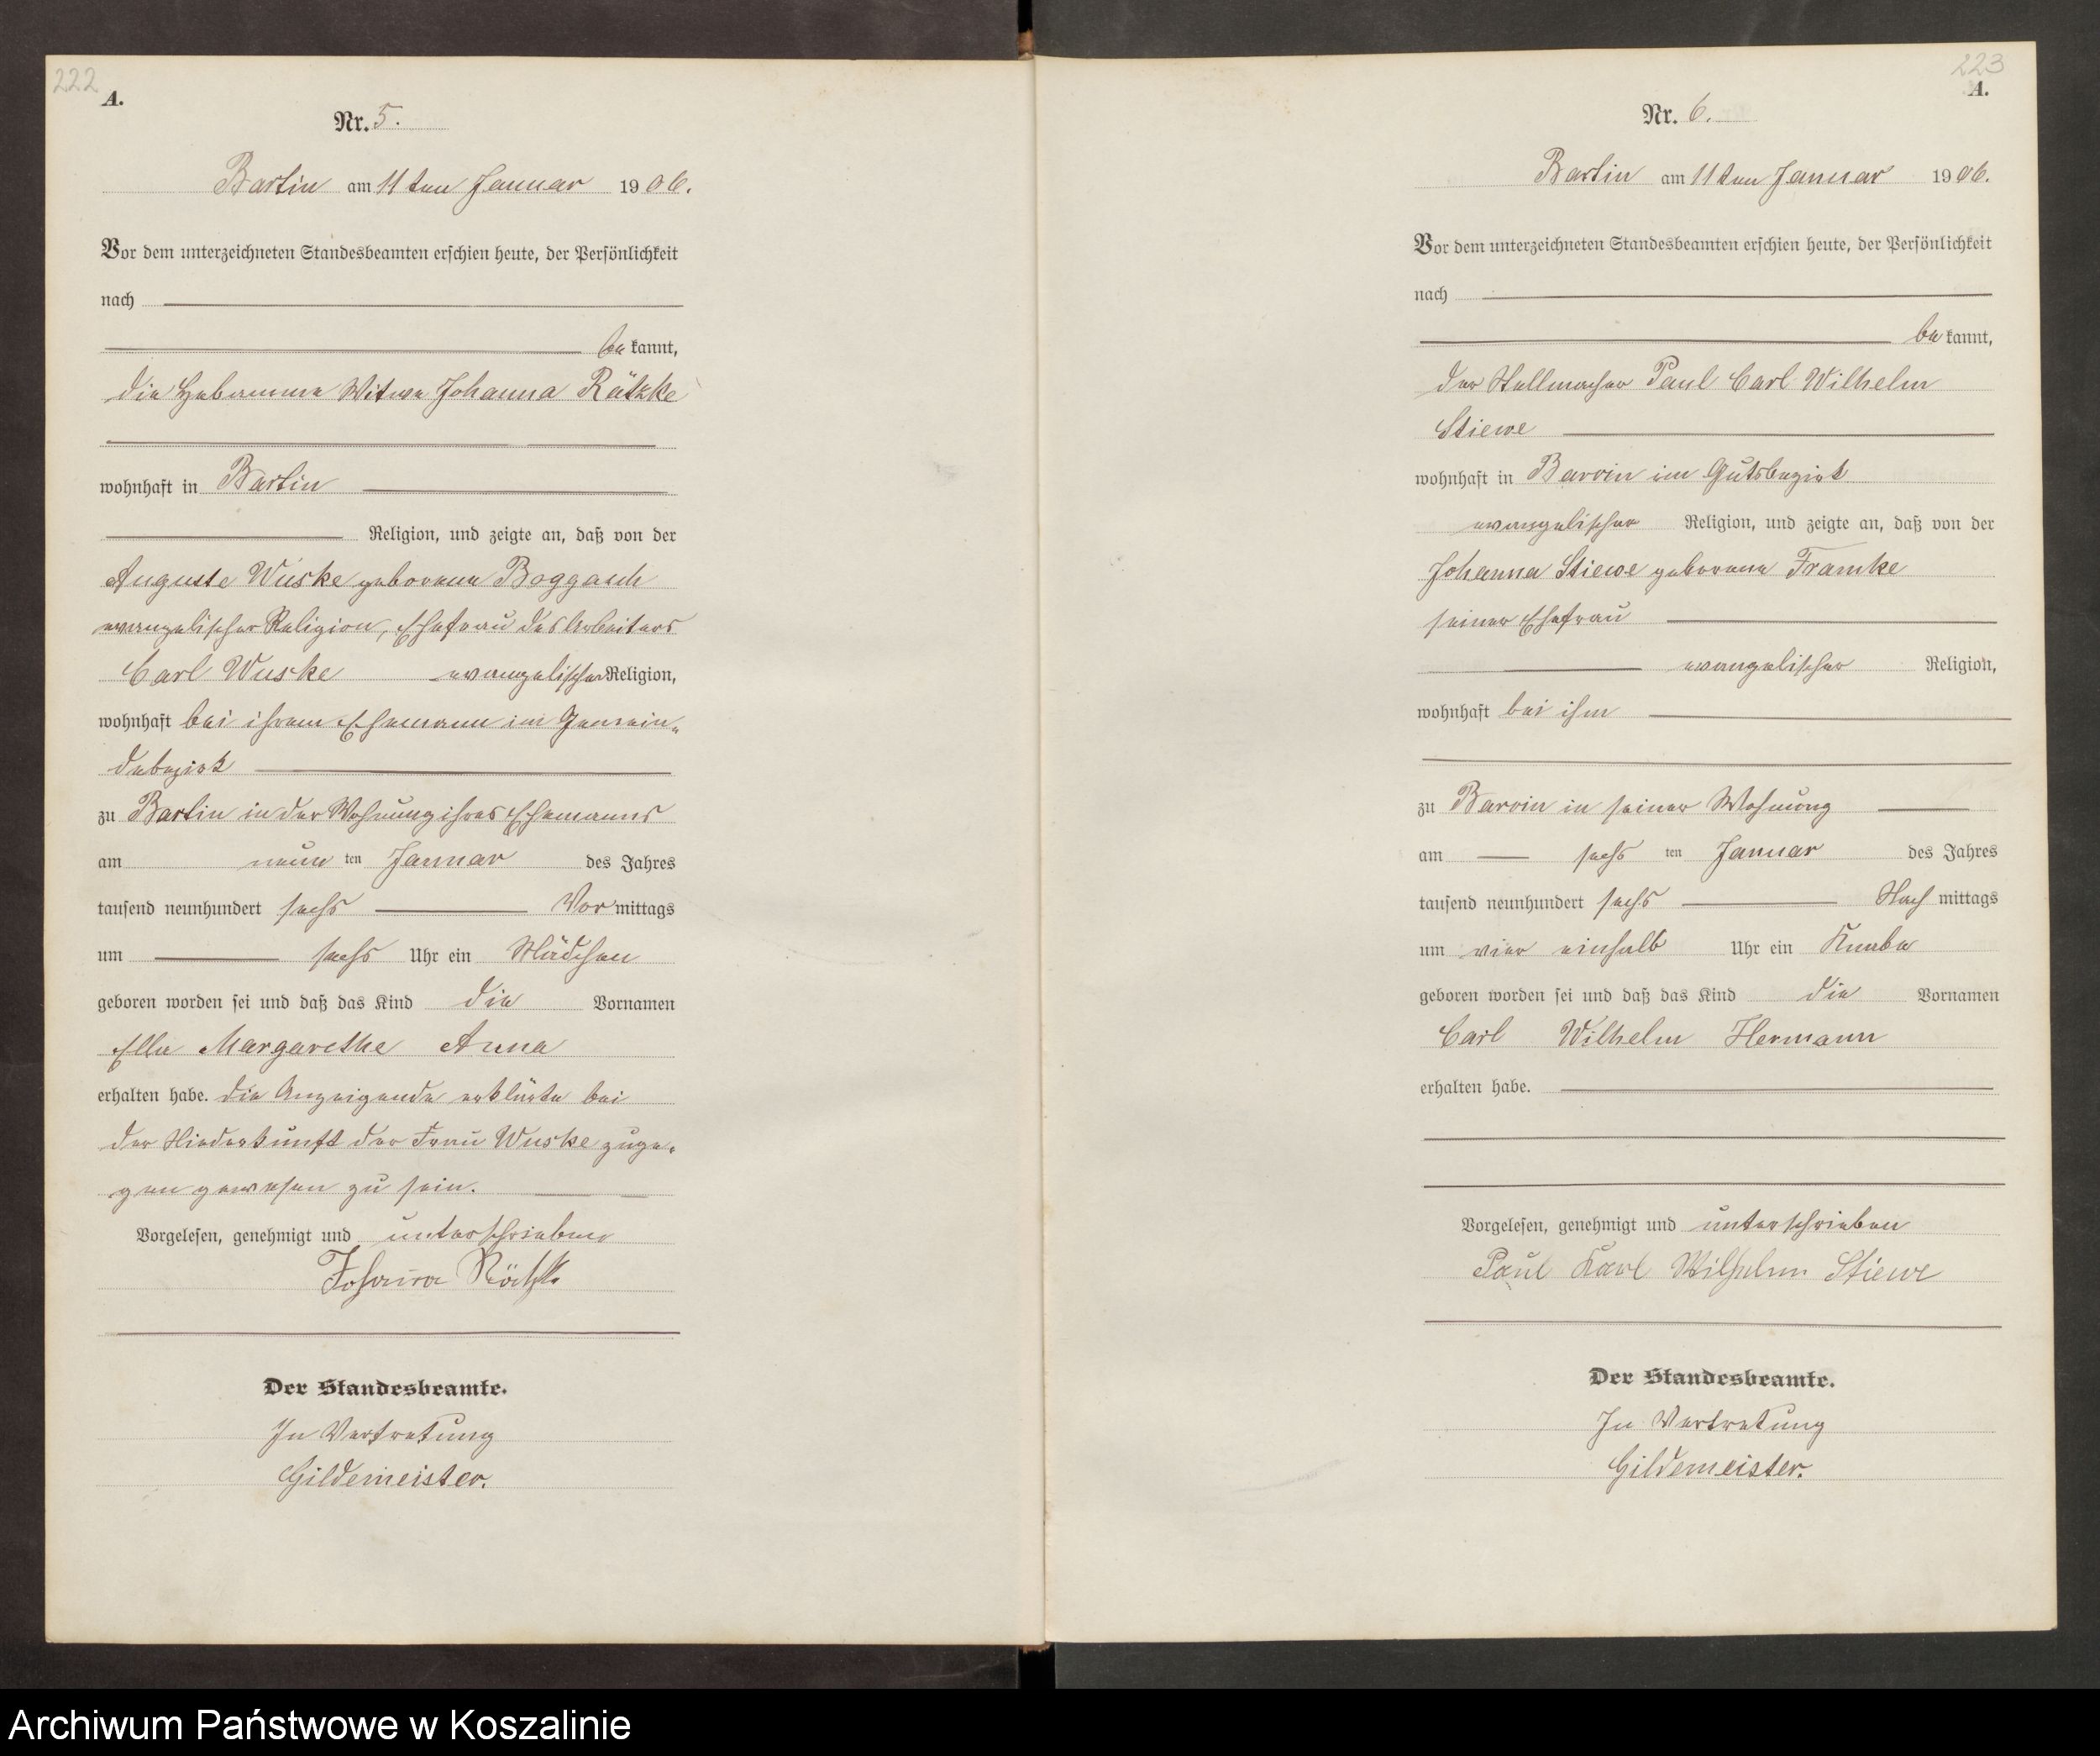 222
A.
Nr. 5.
Bartin am 11ten Januar 1906.
Vor dem unterzeichneten Standesbeamten erschien heute, der Persönlichkeit
nach
be kannt,
die Hebamme Witwe Johanna Rätzke
wohnhaft in Bartin
Religion, und zeigte an, daß von der
Auguste Wuske geborene Boggasch
evangelischer Religion, Ehefrau des Arbeiters
Carl Wuske evangelischer Religion,
wohnhaft bei ihrem Ehemann im Gemein-
debezirk
zu Bartin in der Wohnung ihres Ehemanns
am neun ten Januar des Jahres
tausend neunhundert sechs Vor mittags
um sechs Uhr ein Mädchen
geboren worden sei und daß das Kind die Vornamen
Ella Margarethe Anna
erhalten habe. die Anzeigende erklärte bei
der Niederkunft der Frau Wuske zuge-
gen gewesen zu sein.
Vorgelesen, genehmigt und unterschrieben
Johanna Rätzke
Der Standesbeamte.
In Vertretung
Gildemeister.
223
A.
Nr. 6.
Bartin am 11ten Januar 1906.
Vor dem unterzeichneten Standesbeamten erschien heute, der Persönlichkeit
nach
be kannt,
der Stellmacher Paul Carl Wilhelm
Stiewe
wohnhaft in Barvin im Gutsbezirk
evangelischer Religion, und zeigte an, daß von der
Johanna Stiewe geborene Framke
seiner Ehefrau
evangelischer Religion,
wohnhaft bei ihm
zu Barvin in seiner Wohnung
am sechs ten Januar des Jahres
tausend neunhundert sechs Nach mittags
um vier einhalb Uhr ein Knabe
geboren worden sei und daß das Kind die Vornamen
Carl Wilhelm Hermann
erhalten habe.
Vorgelesen, genehmigt und unterschrieben
Paul Karl Wilhelm Stiewe
Der Standesbeamte.
In Vertretung
Gildemeister.
Archiwum Państwowe w Koszalinie